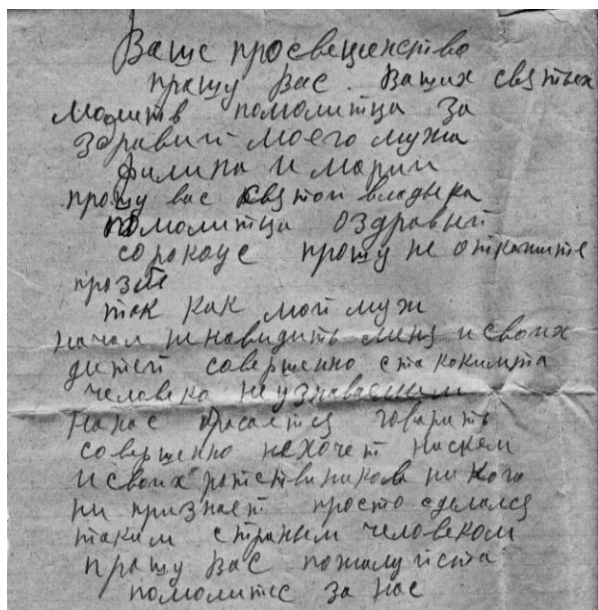 Ваще просвещинство
пращу вас. Ваших святых
молитв помолитца за
здравий моего мужа
филипа и марии
прошу вас святой владыка
помолитца о здравий
сорокоус прошу не откажите
прозбе
так как мой муж
начал ненавидить меня и своих
дитей совершенно
человека неузноваемим
На нас бросается говарить
совершенно нехочет нискем
и своих ротствиников никого
ни признает просто сделался
таким страным человеком
пращу вас пожалуйста
помолитес за нас